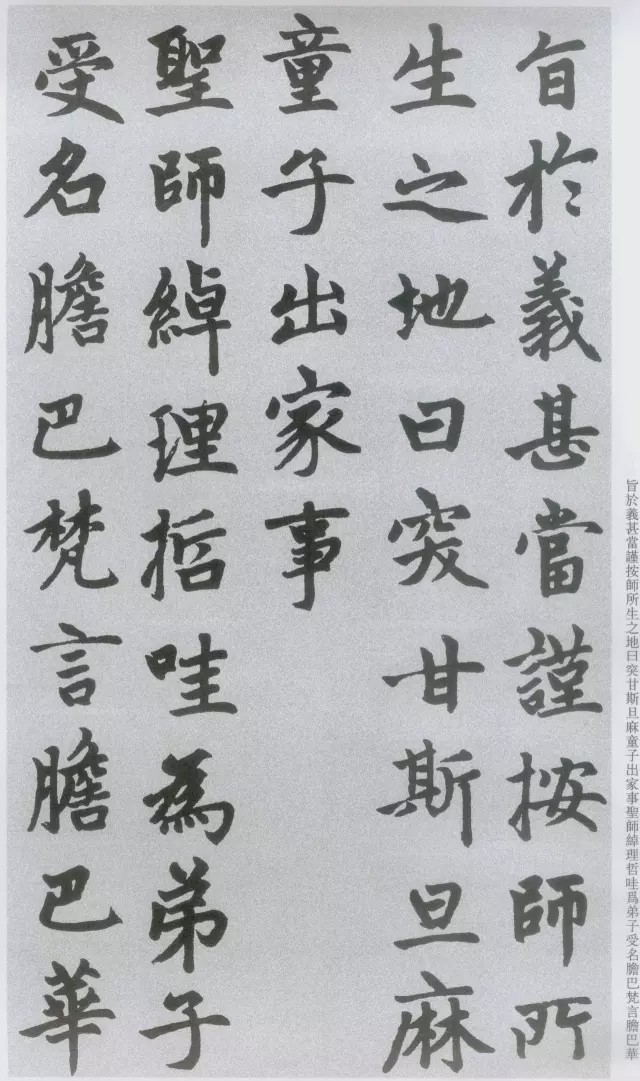 旨於義甚當謹按師所
生之地曰突甘斯旦麻
童子出家事
聖師綽理哲哇為弟子
受名膽巴梵言膽巴華
旨於義甚當謹按師所生之地曰突甘斯旦麻童子出家事聖師綽理哲哇爲弟子受名膽巴梵言膽巴華